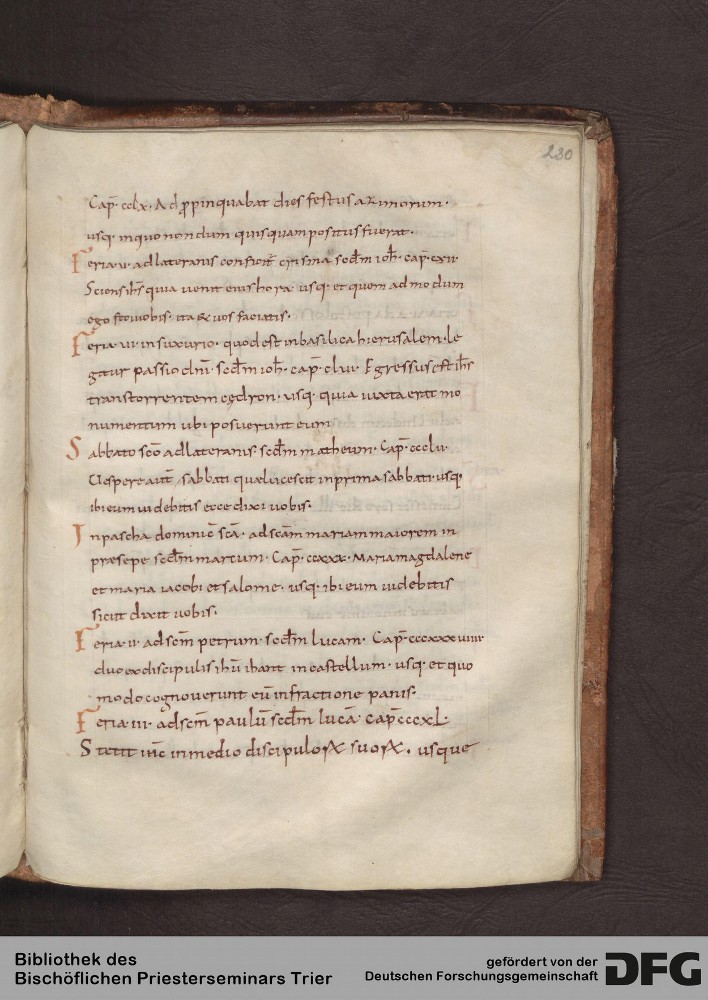 230
Cap̅ cclx· Ad ꝓpinquabat dies festus azimorum·
usq· in quo nondum quisquam positus fuerat·
Feria· v· ad lateranis conficit̅ crisma scd̅m ioh̅· cap̅· cxii·
Sciens ih̅s quia venit eius hora· usq· et quem ad modum
ego feci vobis· ita & vos faciatis·
Feria· vi· in suxurio· quod est in basilica hierusalem· le
gitur passio dn̅i· scd̅m ioh̅· cap̅· clvi· Egressus est ih̅s
trans torrentem cedron· usq· quia iuxta erat mo
numentum ubi posuerunt eum
Sabbato sc̅o ad lateranis· scd̅m matheum· Cap̅· ccclii·
Uespere aut̅ sabbati quae lucescit in prima sabbati· usq·
ibi eum videbitis ecce dixi vobis·
In pascha dominic̅ sc̅a· ad sc̅am mariam maiorem in
praesepe scd̅m marcum· Cap̅· ccxxx· Maria magdalene
et maria iacobi et salome· usq· ibi eum videbitis
sicut dixit vobis·
Feria· ii· ad sc̅m petrum· scd̅m lucam· Cap̅· cccxxxviiii·
duo ex discipulis ih̅u ibant in castellum· usq· et quo
modo cognoverunt eu̅ in fractione panis·
Feria· iii· ad sc̅m paulu̅ scd̅m luca̅ cap̅ cccxl·
Stetit ih̅c in medio discipuloꝝ suoꝝ· usque
Bibliothek des
Bischöflichen Priesterseminars Trier
gefördert von der
Deutschen Forschungsgemeinschaft
DFG